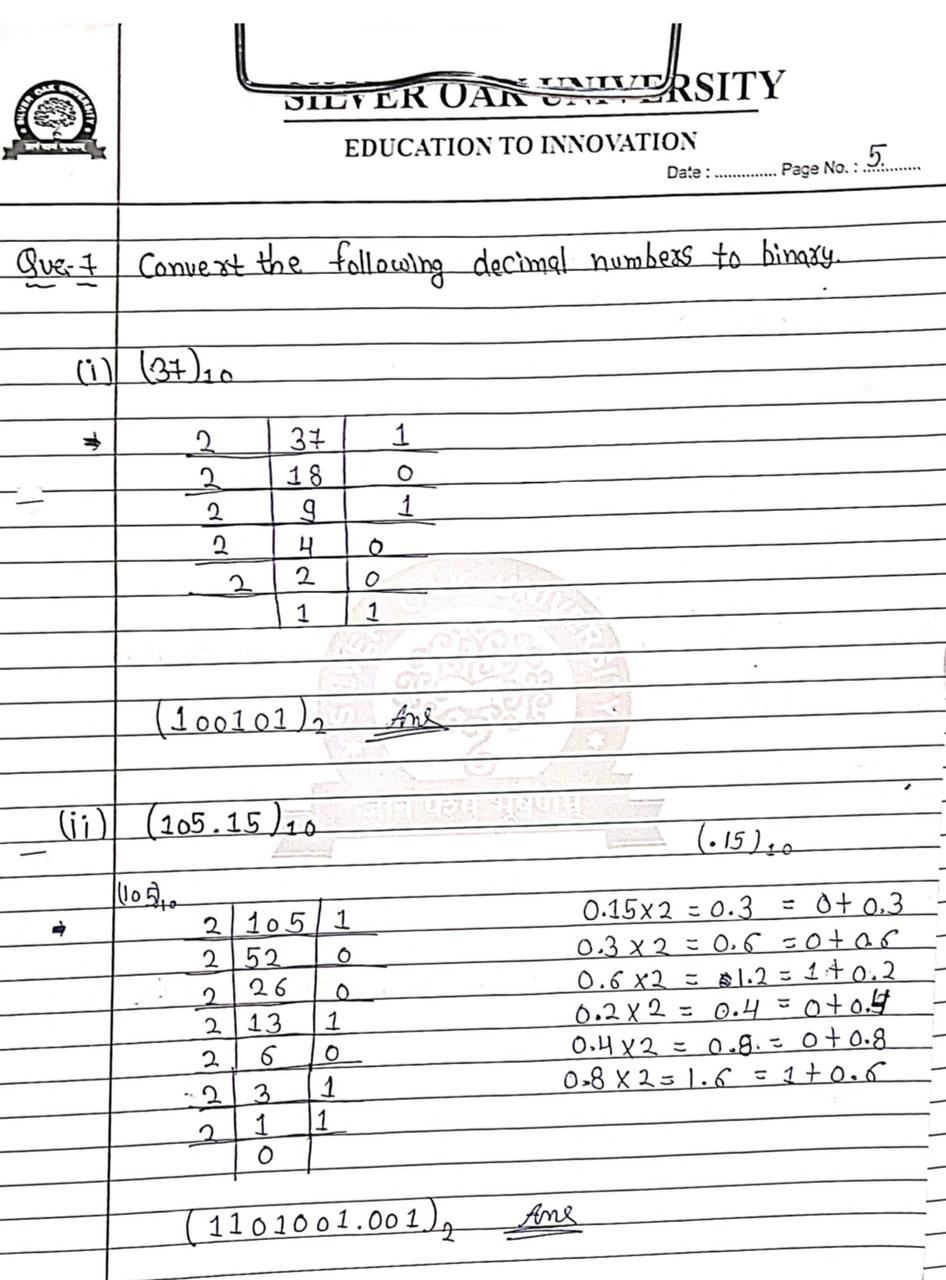 SILVER OAK UNIVERSITY
EDUCATION TO INNOVATION
Date : .............. Page No. : 5
SILVER OAK UNIVERSITY
Que-7 Convert the following decimal numbers to binary.
(i) (37)₁₀
⇒ 2 37 1
2 18 0
2 9 1
2 4 0
2 2 0
1 1
(100101)₂ Ans
ज्ञानं परमं भूषणम्
(ii) (105.15)₁₀
(.15)₁₀
(105)₁₀
⇒ 2 105 1
2 52 0
2 26 0
2 13 1
2 6 0
2 3 1
2 1 1
0
0.15×2 = 0.3 = 0+0.3
0.3×2 = 0.6 = 0+0.6
0.6×2 = 1.2 = 1+0.2
0.2×2 = 0.4 = 0+0.4
0.4×2 = 0.8 = 0+0.8
0.8×2 = 1.6 = 1+0.6
(1101001.001)₂ Ans